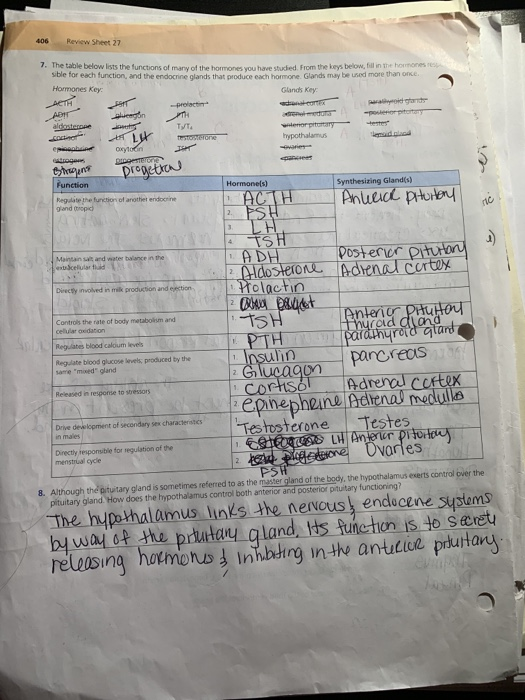 406 Review Sheet 27
7. The table below lists the functions of many of the hormones you have studied. From the keys below, fill in the hormones
sible for each function, and the endocrine glands that produce each hormone. Glands may be used more than once.
Hormones Key: Glands Key:
ACTH FSH prolactin adrenal cortex parathyroid glands
ADH glucagon PTH adrenal medulla posterior pituitary
aldosterone insulin T₃/T₄ anterior pituitary testes
cortisol LH LH testosterone hypothalamus thyroid gland
epinephrine oxytocin TSH ovaries
estrogens progesterone pancreas
Estrogens
Function Hormone(s) Synthesizing Gland(s)
Regulate the function of another endocrine 1. ACTH
gland (tropic) 2. FSH
3. LH
4. TSH
Maintain salt and water balance in the 1. ADH Posterior Pitutary
extracellular fluid 2. Aldosterone Adrenal cortex
Directly involved in milk production and ejection 1. Prolactin
2.
Controls the rate of body metabolism and 1. TSH Anterior Pitutary
cellular oxidation Thyroid gland
Regulates blood calcium levels 1. PTH parathyroid gland
Regulate blood glucose levels; produced by the 1. Insulin pancreas
same "mixed" gland 2. Glucagon
Released in response to stressors 1. Cortisol Adrenal cortex
2. epinephrine Adrenal medulla
Drive development of secondary sex characteristics 1. Testosterone Testes
in males
Directly responsible for regulation of the 1. LH Anterior pitutary
menstrual cycle 2. Ovaries
FSH
8. Although the pituitary gland is sometimes referred to as the master gland of the body, the hypothalamus exerts control over the
pituitary gland. How does the hypothalamus control both anterior and posterior pituitary functioning?
The hypothalamus links the nervous & endocrine systems
by way of the pituitary gland. Its function is to secrete
releasing hormones & inhibiting in the anterior pituitary.